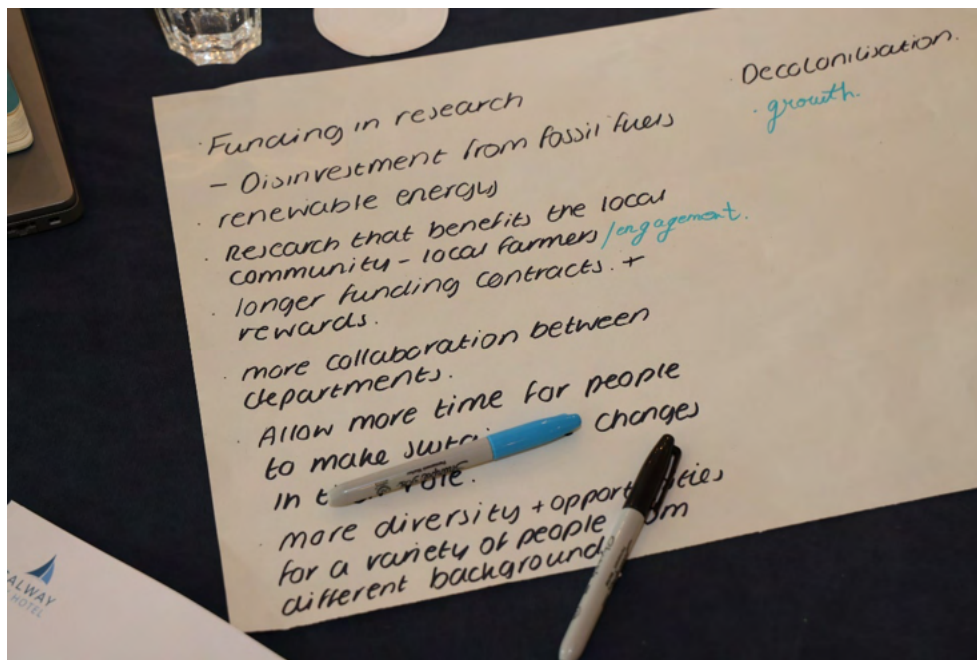 · Funding in research
- Disinvestment from fossil fuels
· renewable energy
· Research that benefits the local
community - local farmers /engagement.
· longer funding contracts. +
rewards.
· more collaboration between
departments.
· Allow more time for people
to make changes
in role.
· more diversity + opportunities
for a variety of people from
different background
· Decolonilisation.
· growth.
ALWAY
HOTEL